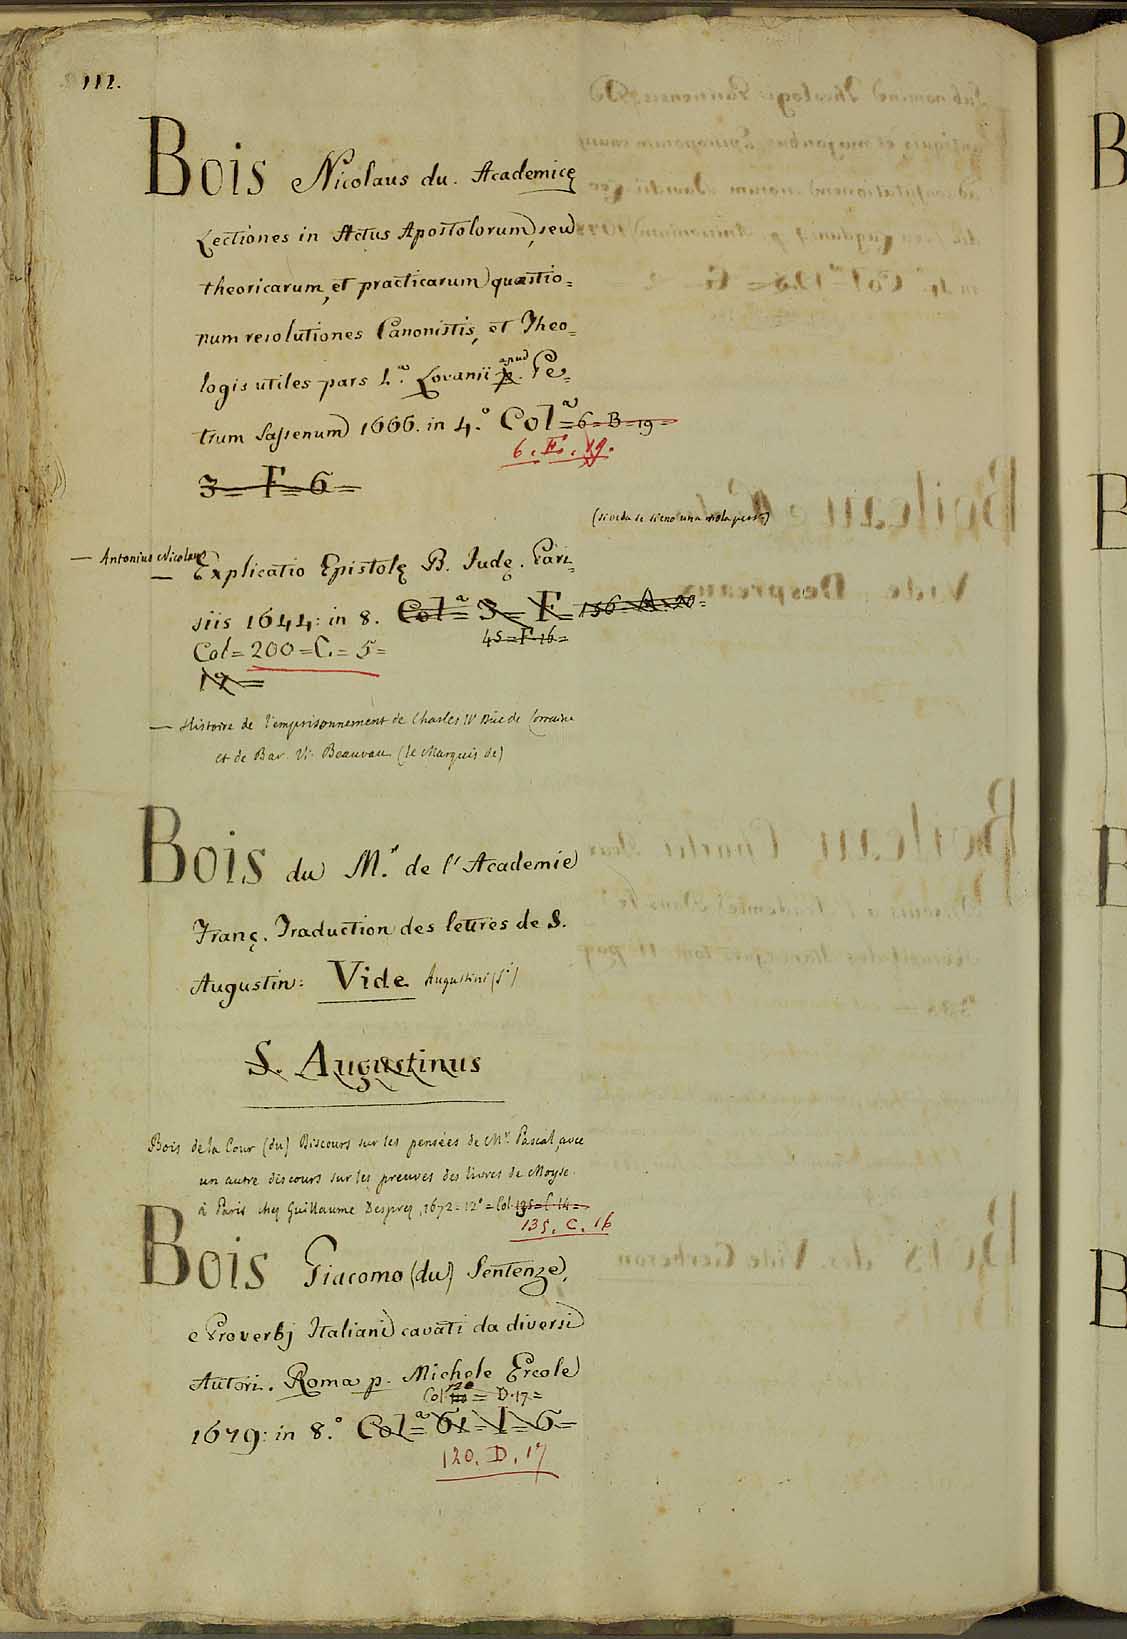 112.
Bois Nicolaus du. Academicę
Lectiones in Actus Apostolorum, seu
theoricarum, et practicarum quæstio=
num resolutiones Canonistis, et Theo=
logis utiles pars 1.ª Lovanii p. apud Pe=
trum Sassenum 1666. in 4.° Colª = 6 = B = 19 =
6. E. 19.
3 = F = 6 =
(si veda se sieno una
— Antonius Nicolaus
— Explicatio Epistolę B. Judę. Pari=
siis 1644: in 8. Colª = 3 = F = 156 = A = 20 =
45 = F 16 =
Col = 200 = C. = 5 =
19 =
— Histoire de l'emprisonnement de Charles IV Duc de Lorraine
et de Bar. V. Beauvau (le Marquis de)
Bois du M.r de l'Academie
Franç. Traduction des lettres de S.
Augustin: Vide Augustini (S.i)
S. Augustinus
Bois de la Cour (du) Discours sur les pensées de Mr. Pascal, avec
un autre discours sur les preuves des livres de Moyse.
à Paris chez Guillaume Desprez, 1672 = 12° = Col 135 = C 14 =
135. C. 16
Bois Giacomo (du) Sentenze,
e Proverbj Italiani cavati da diversi
Autori. Roma p. Michele Ercole
Col 120 = D. 17 =
1679: in 8.° Colª = 61 = I = 6 =
120. D. 17